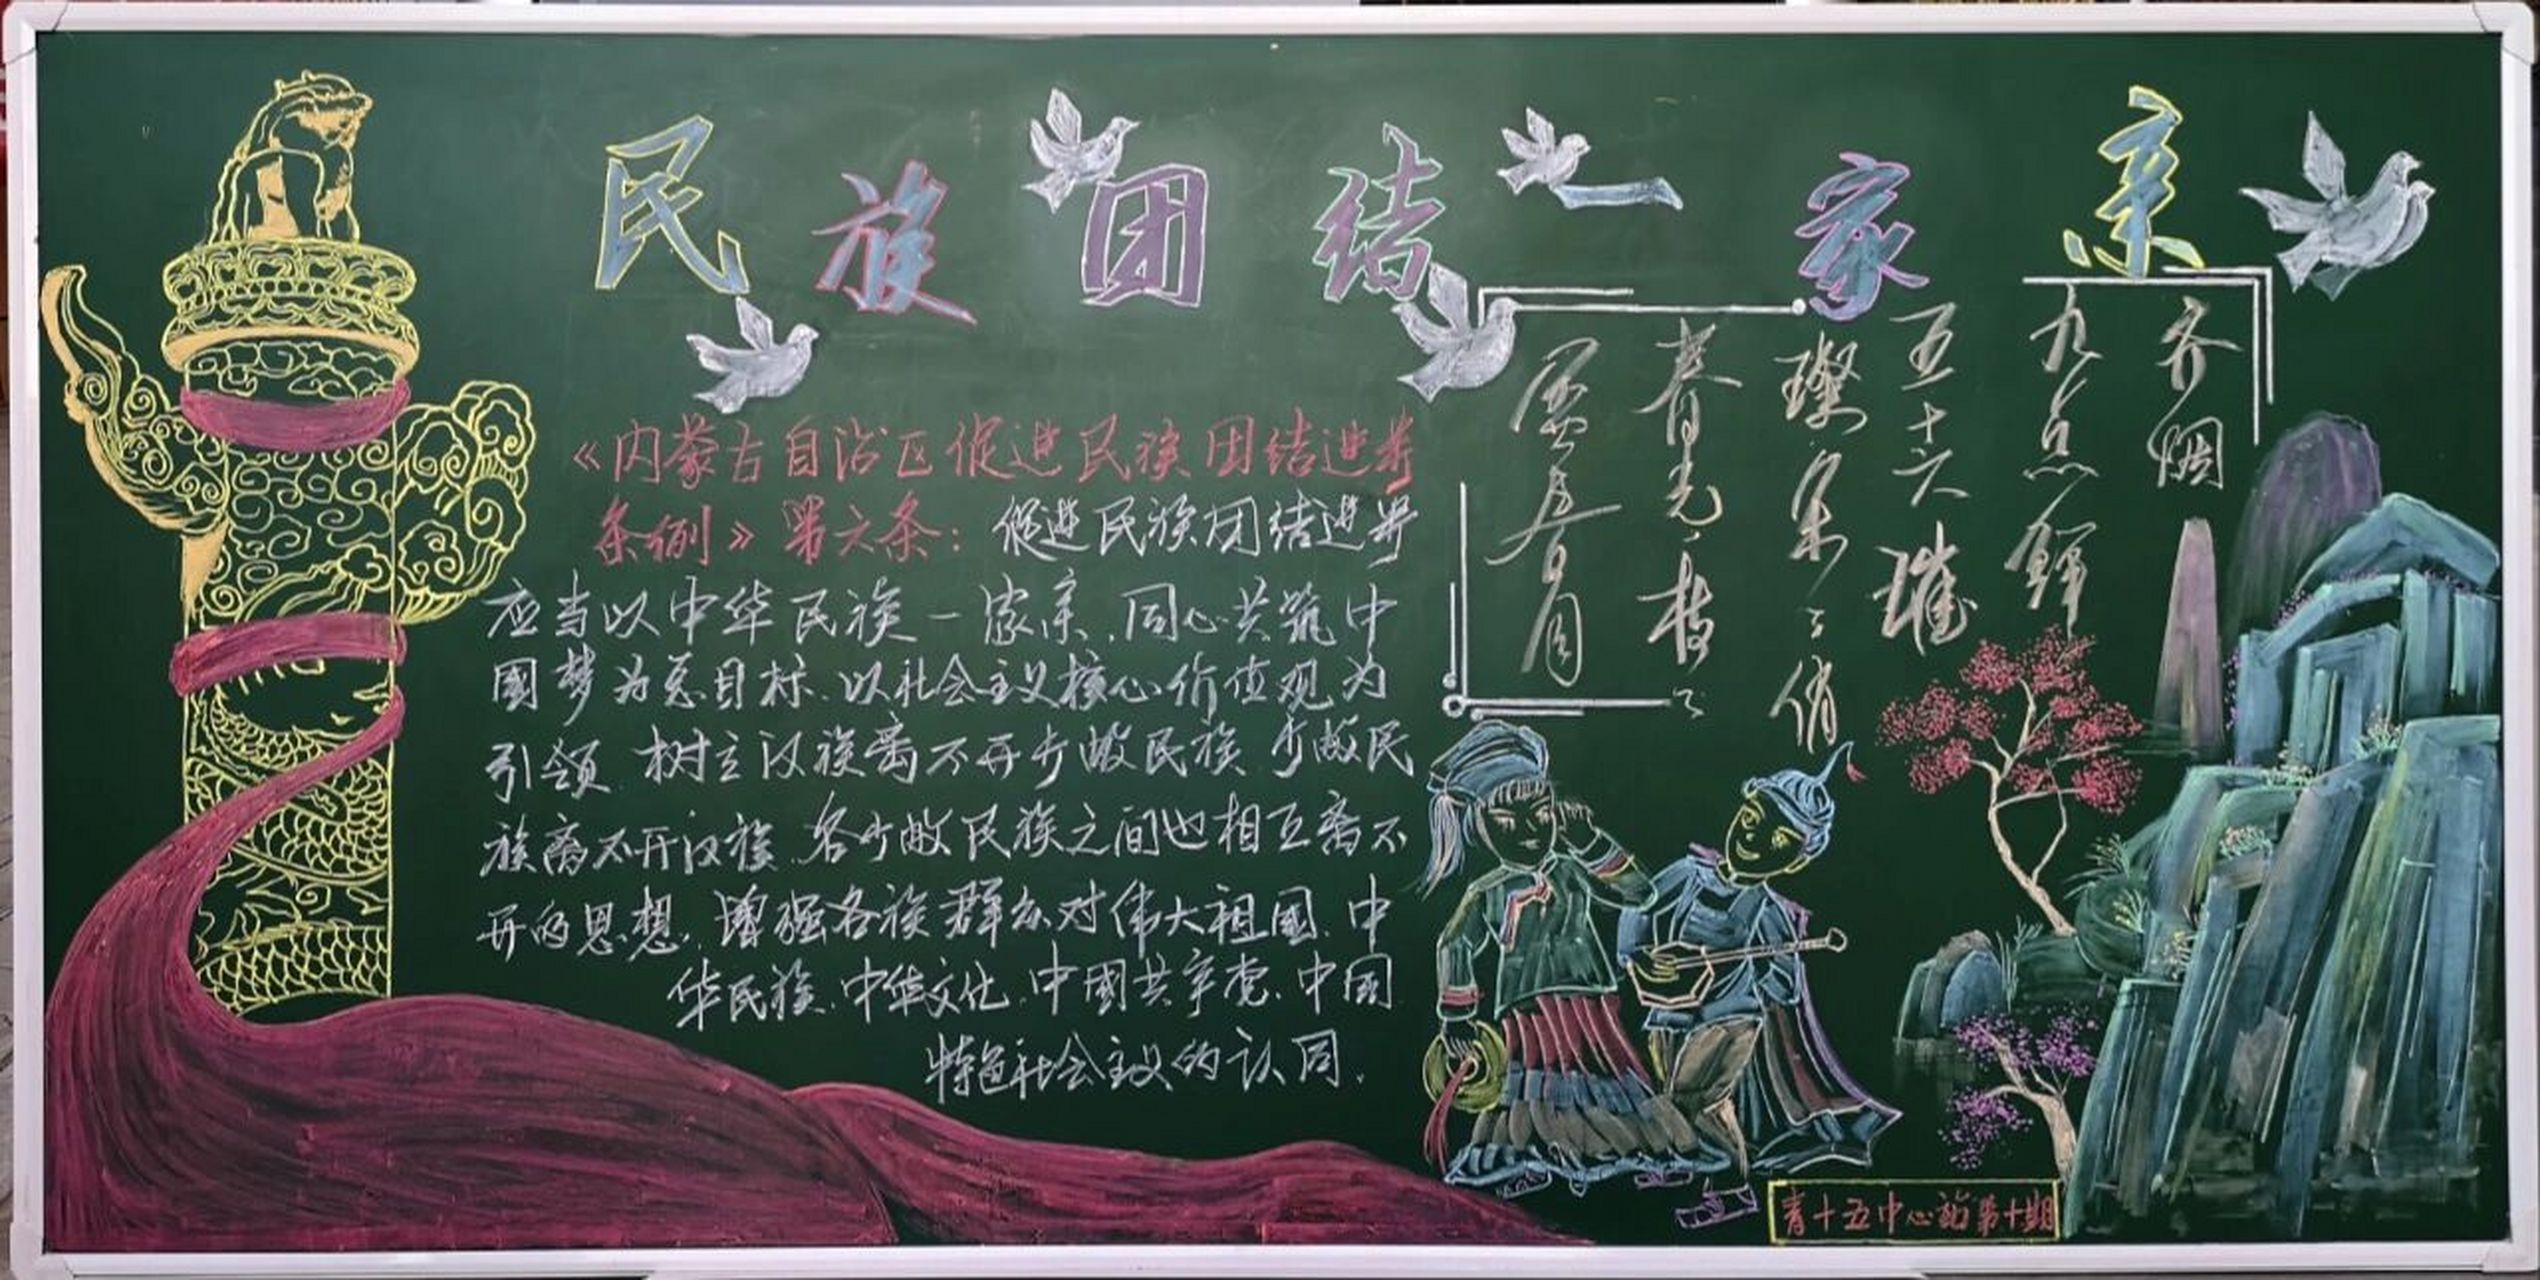 民族团结一家亲
《内蒙古自治区促进民族团结进步
条例》第六条：促进民族团结进步
应当以中华民族一家亲，同心共筑中
國梦为总目标、以社会主义核心价值观为
引领、树立汉族离不开少数民族、少数民
族离不开汉族、各少数民族之间也相互离不
开的思想，增强各族群众对伟大祖國、中
华民族、中华文化、中國共产党、中国
特色社会主义的认同.
齐烟
九点辉
五十六璀
璨朵々俏
春光枝々
月
青十五中心站第十期